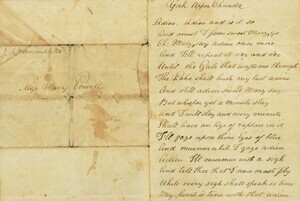 Miss Mary Powell
York Upper Canada
Adieu Adieu and is it so
And must I from sweet Mary go
Oh Mary say adieu once more
And I'll repeat it oer and oer
Until the Gale that wafts me through
The Lake shall hush my last adieu
And still adieu sweet Mary say
But whisper yet a minute stay
And I will stay and every minute
Shall have an age of rapture in it
I'll gaze upon those eyes of blue
And murmur while I gaze adieu
Adieu I'll murmur with a sigh
And tell thee that I now must fly
While every sigh shall speak so true
My heart is torn with that adieu